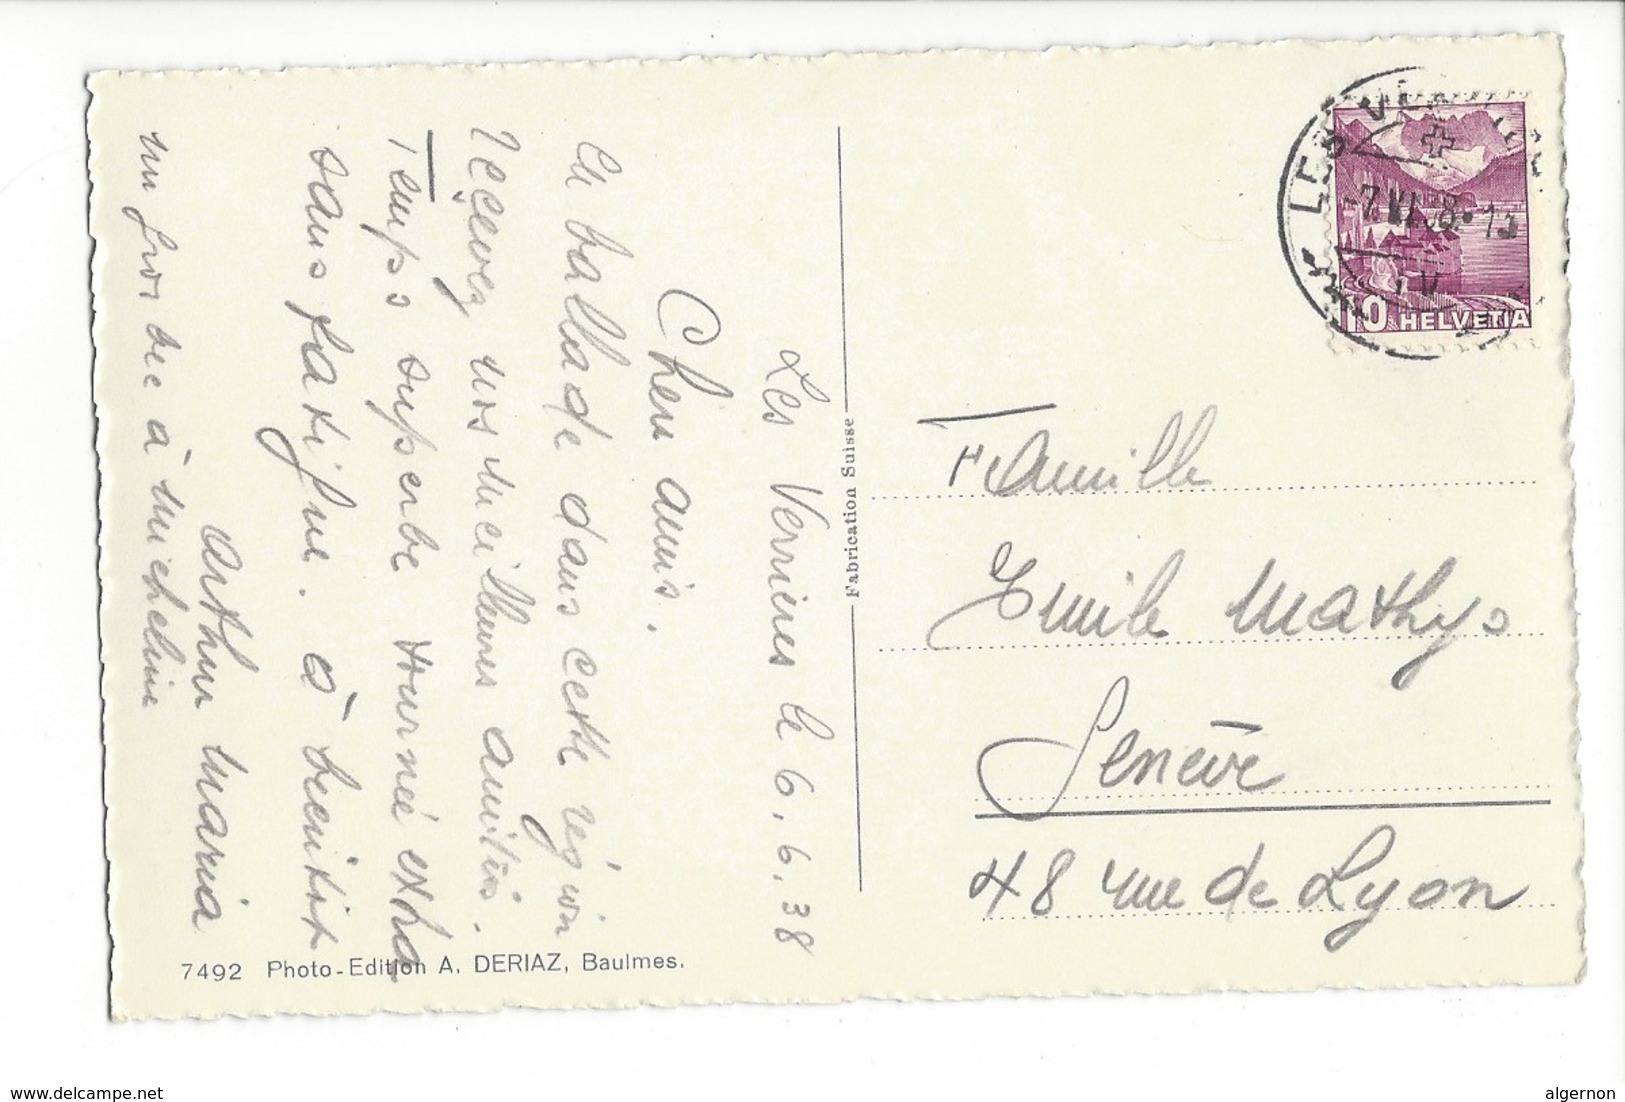 Les Verrières le 6.6.38
Chers amis.
En ballade dans cette région
Recevez nos meilleures amitiés.
Temps superbe tournée extra
sans fatigue. à bientôt
Arthur Maria
un gros bec à Micheline
7492 Photo-Edition A. DERIAZ, Baulmes.
Fabrication Suisse
LES VER
-7.VI.38.
10 HELVETIA
Famille
Emile Mathys
Genève
48 rue de Lyon
www.delcampe.net
algernon